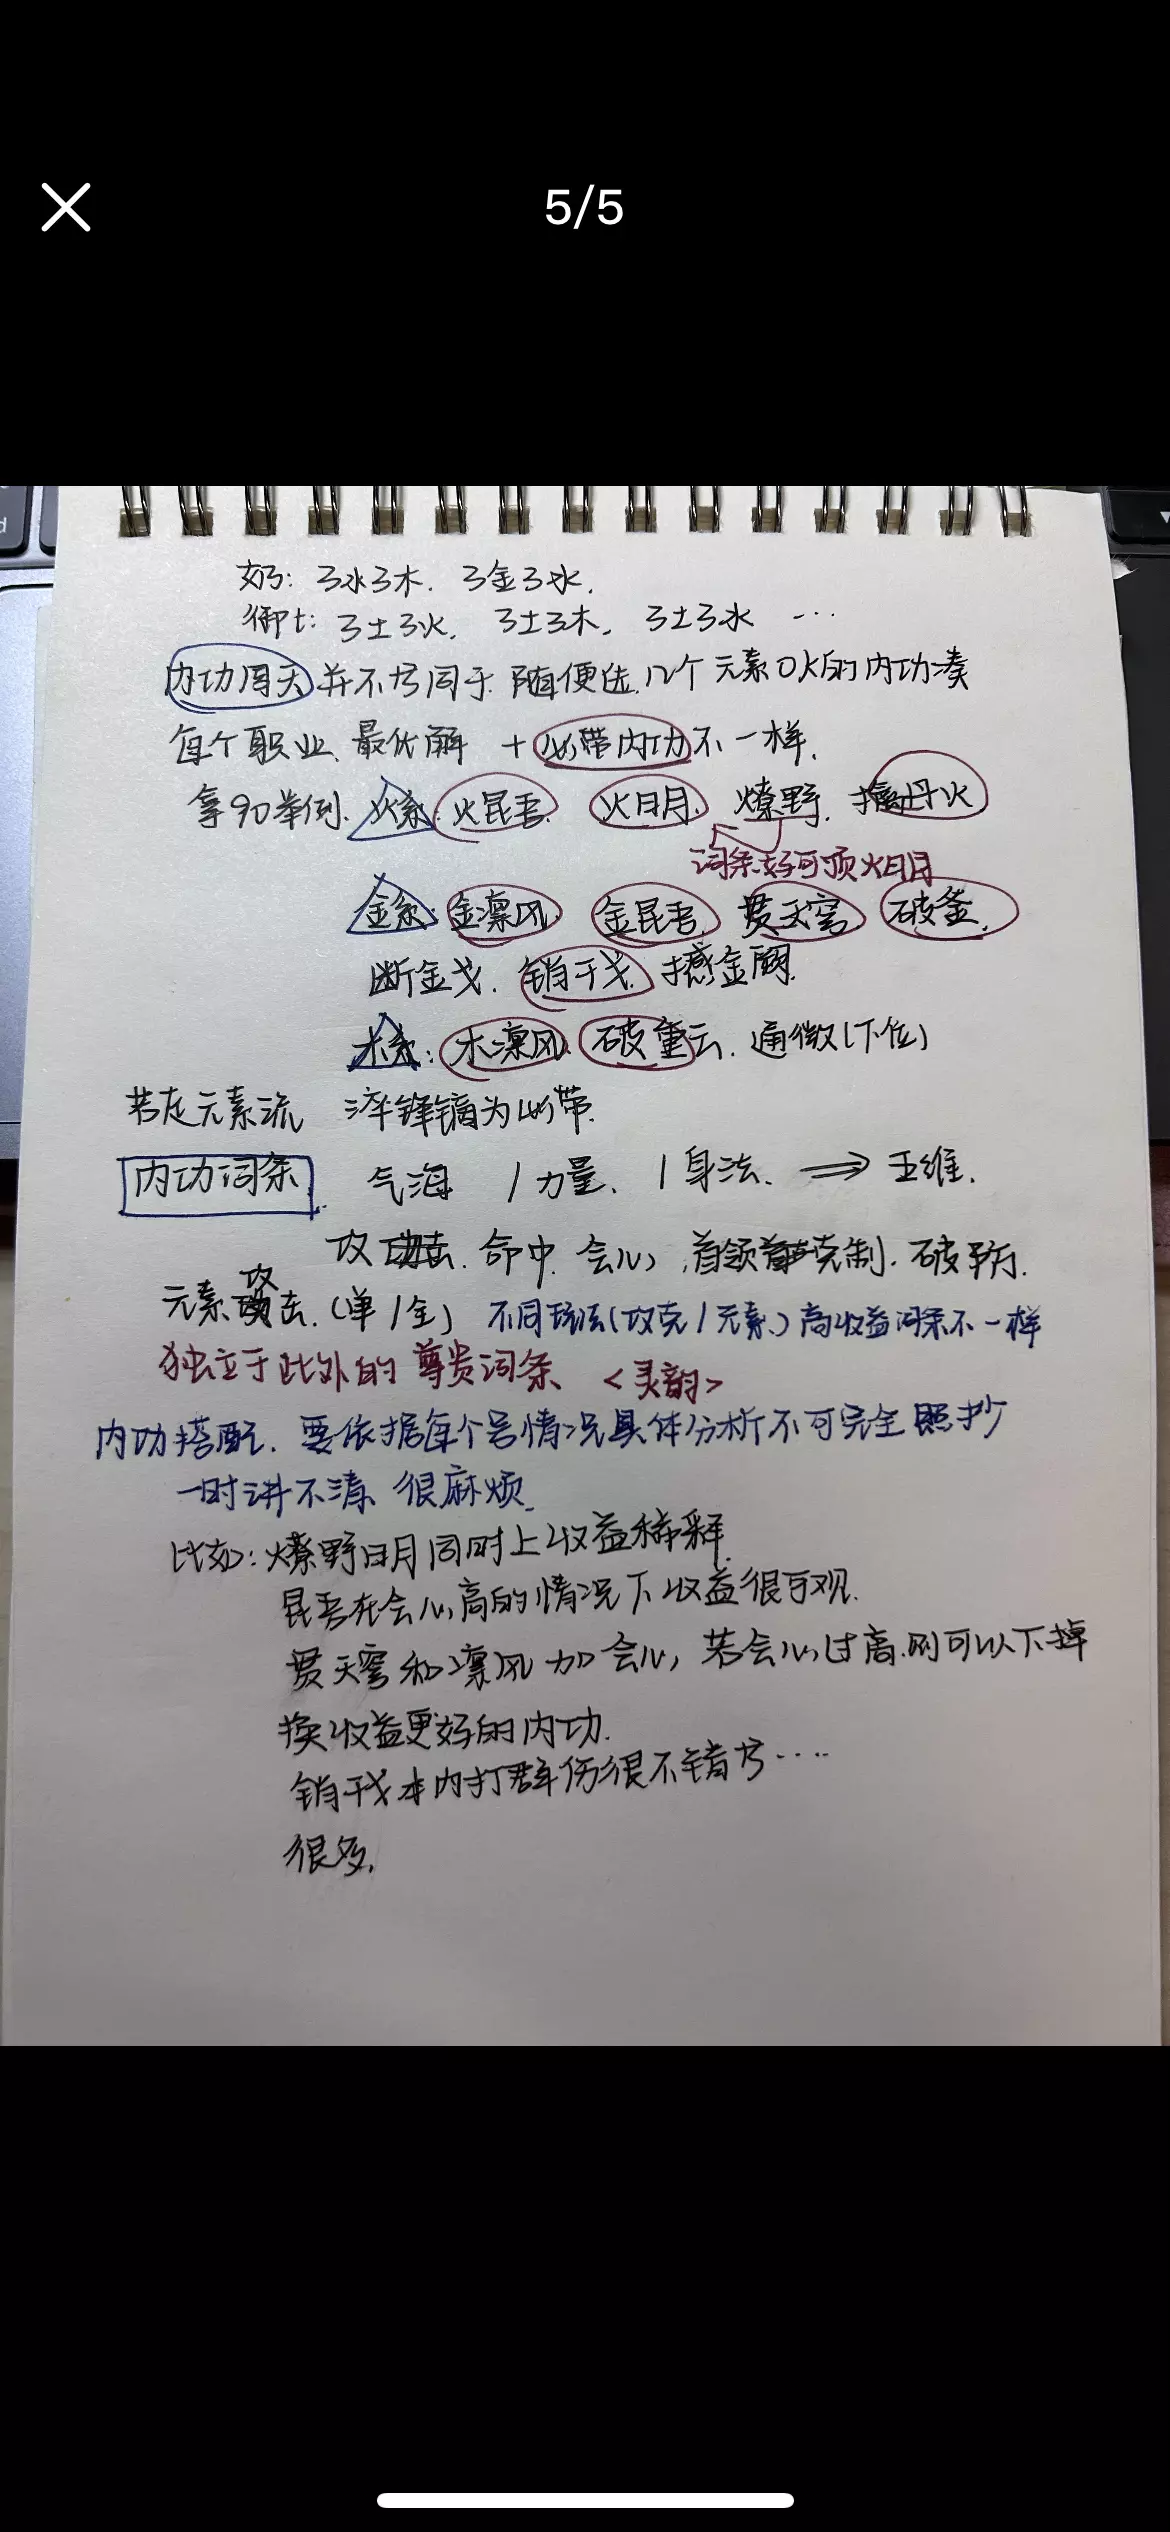 5/5
奶: 3水3木. 3金3水.
御t: 3土3火. 3土3木. 3土3水 ...
内功周天 并不等同于 随便选 12个元素OK的内功凑
每个职业 最优解 + 必带内功不一样.
拿90举例. 火系: 火昆吾. 火日月. 燎野. 丹火
词条好可顶火日月
金系: 金凛风 金昆吾. 贯天穹 破釜.
断金戈. 销干戈. 撼金阙.
木系: 木凛风. 破重云. 通微(下位)
若走元素流 淬锋镝为必带.
内功词条. 气海 / 力量. / 身法. ⇒ 五维.
攻击. 命中. 会心, 首领克制. 破防.
元素攻击. (单/全) 不同玩法(攻克/元素)高收益词条不一样
独立于此外的 尊贵词条 <灵韵>
内功搭配. 要依据每个号情况具体分析不可完全照抄
一时讲不清 很麻烦.
比如: 燎野日月同时上收益稀释.
昆吾在会心高的情况下收益很可观.
贯天穹和凛风加会心, 若会心过高.则可以下掉
换收益更好的内功.
销干戈本内打群伤很不错等....
很多.